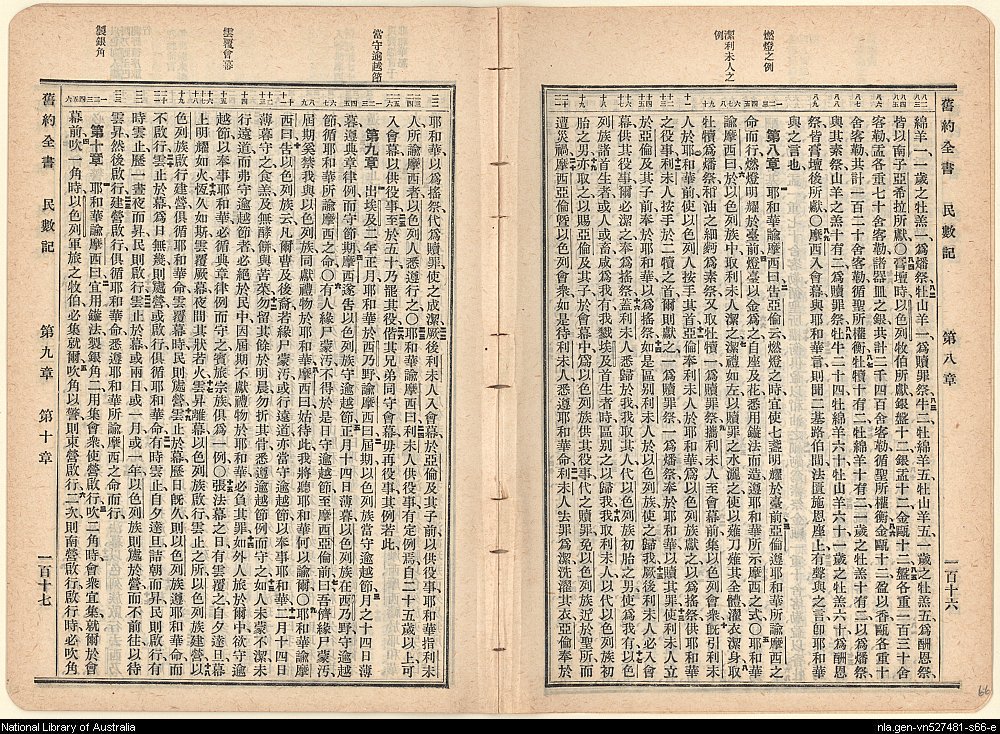 燃燈之例
潔利未人之例
舊約全書 民數記 第八章 一百十六
綿羊一、一歲之牡羔一、爲燔祭、牡山羊一、爲贖罪祭、牛二、牡綿羊五、牡山羊五、一歲之牡羔五、爲酬恩祭、
皆以南子亞希拉所獻、○膏壇時、以色列牧伯所獻、銀盤十二、銀盂十二、金甌十二、盤各重一百三十舍
客勒、盂各重七十舍客勒、諸器皿之銀、共計二千四百舍客勒、循聖所權衡、金甌十二、盈以香、甌各重十
舍客勒、共計一百二十舍客勒、循聖所權衡、牡犢十有二、牡綿羊十有二、一歲之牡羔十有二、以爲燔祭、
與其素祭、牡山羊十有二、爲贖罪祭、牡牛二十四、牡綿羊六十、牡山羊六十、一歲之牡羔六十、爲酬恩
祭、皆膏壇後所獻、○摩西入會幕、與耶和華言、則聞二基路伯間、法匱施恩座上、有聲與之言、卽耶和華
與之言也、
第八章 耶和華諭摩西曰、告亞倫云、燃燈之時、宜使七盞明耀於臺前、亞倫遂燃之、循耶和華所諭摩西之
命而行、燃燈明耀於臺前、燈臺以金爲之、自座及花、悉用鏇法而造、遵耶和華所示摩西之式、○耶和華
諭摩西曰、於以色列族中、取利未人潔之、潔禮如左、以贖罪之水灑之、使以薙刀薙其全體、濯衣潔身、取
牡犢爲燔祭、和油之細麪爲素祭、又取牡犢一、爲贖罪祭、攜利未人至會幕前、集以色列會衆、旣引利未
人於耶和華前、以色列人按手其首、亞倫奉利未人於耶和華、爲以色列族獻之、以爲搖祭、俾供耶和華
之役事、利未人按手於二犢之首、爾則獻之、一爲贖罪祭、一爲燔祭、奉於耶和華、以贖其罪、使利未人立
於亞倫及其子前、奉於耶和華、以爲搖祭、如是區別利未人於以色列族、使之歸我、厥後利未人必入會
幕、供其役事、爾必潔之、奉爲搖祭、蓋利未人悉歸於我、我取其人、代以色列族初胎之男、使爲我有、以色
列族諸首生者、或人或畜、咸爲我有、我擊埃及首生者時、區別之以歸我、我取利未人、代以色列族初
胎之男、亦取之以賜亞倫及其子、於會幕中爲以色列族供其役事、代之贖罪、免以色列族近於聖所、而
遭災禍、摩西亞倫暨以色列會衆、如是待利未人、悉遵耶和華命、利未人去罪爲潔、洗濯其衣、亞倫奉於
當守逾越節
雲覆會幕
製銀角
耶和華、以爲搖祭、代爲贖罪、使之成潔、厥後利未人入會幕、於亞倫及其子前、以供役事、耶和華指利未
人所諭摩西者、以色列人悉遵行之、○耶和華諭摩西曰、利未人供役事、有定例焉、自二十五歲以上、可
入會幕、以供役事、至於五十、乃罷其役、偕其兄弟、同守會幕、毋再役事、其例若此、
第九章 出埃及二年正月、耶和華於西乃野諭摩西曰、屆期、以色列族當守逾越節、月之十四日薄
暮、遵典章律例、而守節期、摩西遂告以色列族守逾越節、正月十四日薄暮、以色列族在西乃野守逾越
節、循耶和華所諭摩西之命、○有人緣尸蒙汚、不得於是日守逾越節、詣摩西亞倫前曰、吾儕緣尸蒙汚、
屆期奚禁我與以色列族、同獻禮物於耶和華、摩西曰、始待此、我將聽耶和華何以諭爾、○耶和華諭摩
西曰、告以色列族云、凡爾曹及後裔、若緣尸蒙汚、或行遠道、亦當守逾越節、以奉事耶和華、二月十四日
薄暮守之、食羔及無酵餅與苦菜、勿留其餘於明晨、勿折其骨、悉遵逾越節例而守之、如人未蒙不潔、未
行遠道、而弗守逾越節者、必絕於民中、因屆期不獻禮物於耶和華、必負其罪、如外人旅於爾中、欲守逾
越節、以奉事耶和華、必循典章律例而守之、賓旅宗族、俱爲一例、○張法幕之日、有雲覆之、自夕達旦、幕
上明耀如火、恆久如斯、雲覆厥幕、夜間其狀若火、雲昇離幕、以色列族啟行、雲止之所、以色列族建營、以
色列族啟行建營、俱循耶和華命、雲覆幕時、民則處營、雲止於幕歷日旣久、則以色列族遵耶和華命、而
不啟行、雲止於幕、爲日無幾、則處營、或啟行、俱循耶和華命、有時雲止、自夕達旦、詰朝而昇、民則啟行、有
時雲止、歷一晝夜而昇、民則啟行、雲止於幕、或兩日、或一月、或一年、以色列族則處於營、而不前往、以待
雲昇、然後啟行、建營啟行、俱循耶和華命、悉遵耶和華所諭摩西之命而行、
第十章 耶和華諭摩西曰、宜用鏇法製銀角二、用集會衆、使營啟行、吹二角時、會衆宜集、就爾於會
幕前、吹一角時、以色列軍旅之牧伯必集就爾、吹角以聲、則東營啟行、二次則南營啟行、啟行時、必吹角
舊約全書 民數記 第九章 第十章 一百十七
66
National Library of Australia
nla.gen-vn527481-s66-e